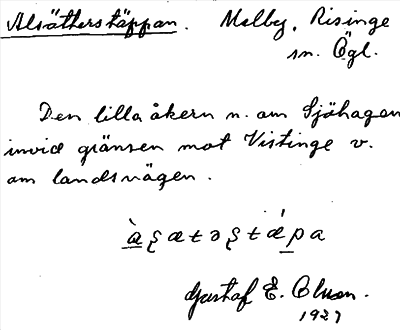 Alsätterstäppan. Melby, Risinge
sn. Ögl.
Den lilla åkern n. om Sjöhagen
invid gränsen mot Vistinge v.
om landsvägen.
Gustaf E.
1927